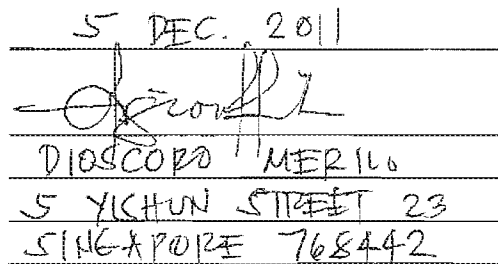 5 DEC. 2011
DIOSCORO MERILO
5 YISHUN STREET 23
SINGAPORE 768442